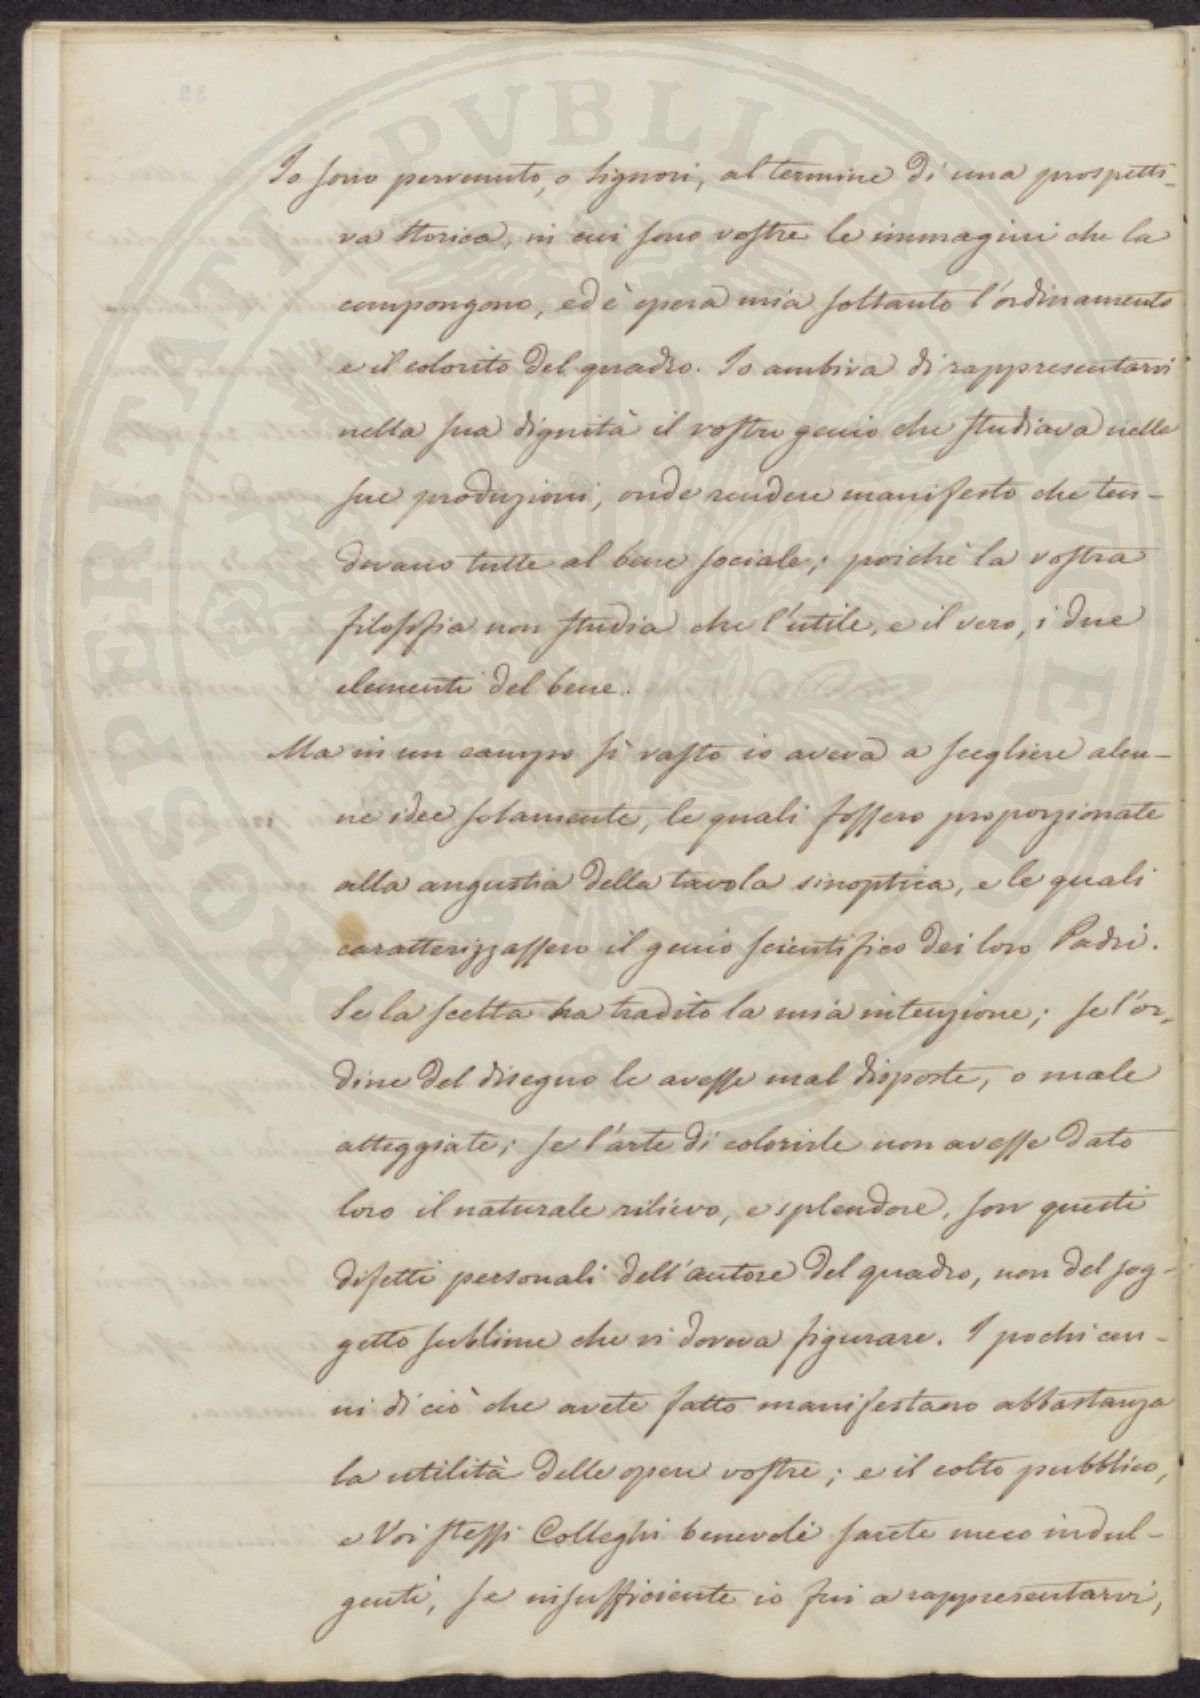 Io sono pervenuto, o Signori, al termine di una prospetti-
va storica, in cui sono vostre le immagini che la
compongono, ed è opera mia soltanto l'ordinamento
e il colorito del quadro. Io ambiva di rappresentarvi
nella sua dignità il vostro genio che studiava nelle
sue produzioni, onde rendere manifesto che ten-
devano tutte al bene sociale; poichè la vostra
filosofia non studia che l'utile, e il vero, i due
elementi del bene.
Ma in un campo sì vasto io aveva a scegliere alcu-
ne idee solamente, le quali fossero proporzionate
alla angustia della tavola sinoptica, e le quali
caratterizzassero il genio scientifico dei loro Padri.
Se la scelta ha tradito la mia intenzione; se l'or-
dine del disegno le avesse mal disposte, o male
atteggiate; se l'arte di colorirle non avesse dato
loro il naturale rilievo, e splendore, son questi
difetti personali dell'autore del quadro, non del sog-
getto sublime che vi doveva figurare. I pochi cen-
ni di ciò che avete fatto manifestano abbastanza
la utilità delle opere vostre; e il colto pubblico,
e Voi stessi Colleghi benevoli sarete meco indul-
genti, se insufficiente io fui a rappresentarvi,
PROSPERITATI PVBLICAE AVGENDAE